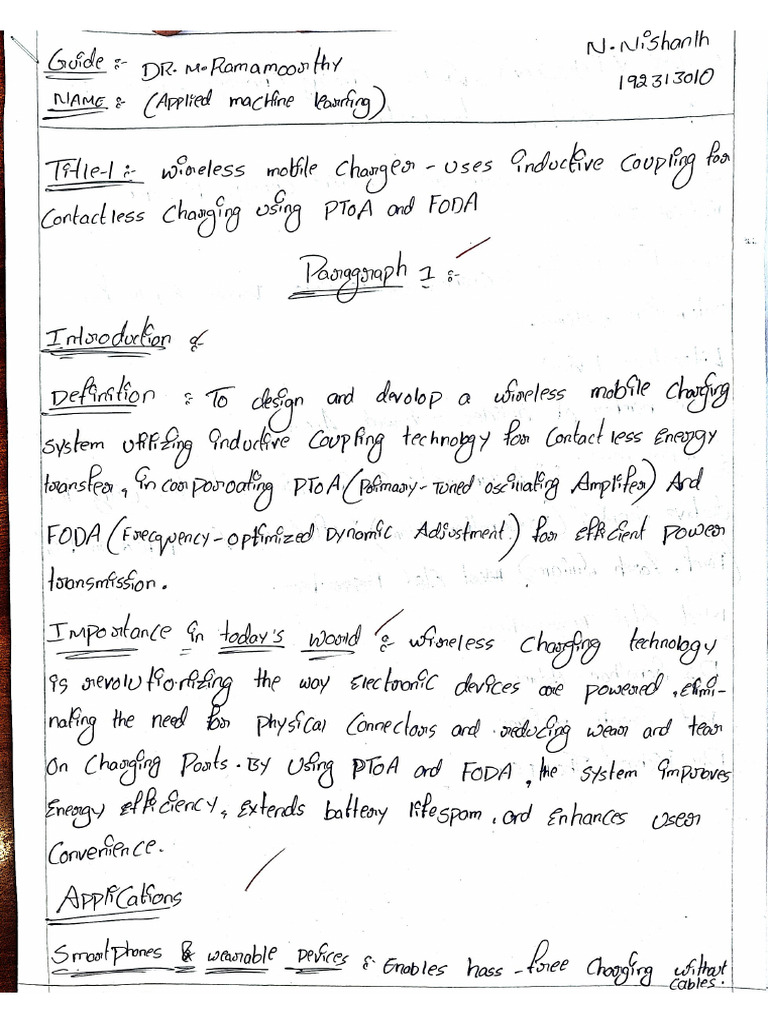 Guide :- DR. M. Ramamoorthy
N. Nishanth
192313010
NAME :- (Applied machine learning)
Title-1 :- wireless mobile charger - uses inductive coupling for
Contactless Charging using PTOA and FODA
Paragraph 1 :-
Introduction :-
Definition : To design and devolop a wireless mobile charging
system utilizing inductive coupling technology for contactless Energy
transfer, incorporating PTOA (Primary-Tuned oscillating Amplifer) And
FODA (Frecquency-optimized Dynamic Adjustment) for efficient power
transmission.
Importance in today's world :- wireless charging technology
is revolutionizing the way Electronic devices are powered, elimi-
nating the need for physical connectors and reducing wear and tear
on charging Ports. By using PTOA and FODA, the system improves
Energy efficiency, extends battery lifespam, and enhances user
convenience.
Applications
Smartphones & wearable Devices :- Enables hass-free charging without
cables.